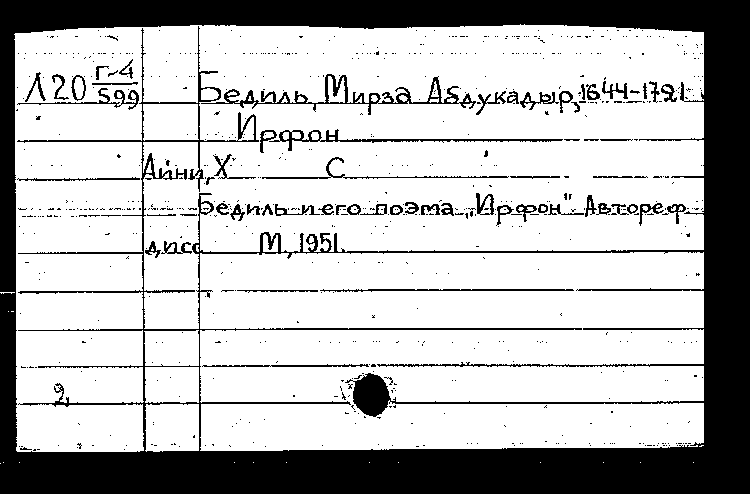 Л20 Г-4/599 Бедиль, Мирза Абдукадыр, 1644-1721
Ирфон
Айни, Х С
Бедиль и его поэма „Ирфон" Автореф
дисс М, 1951.
2,